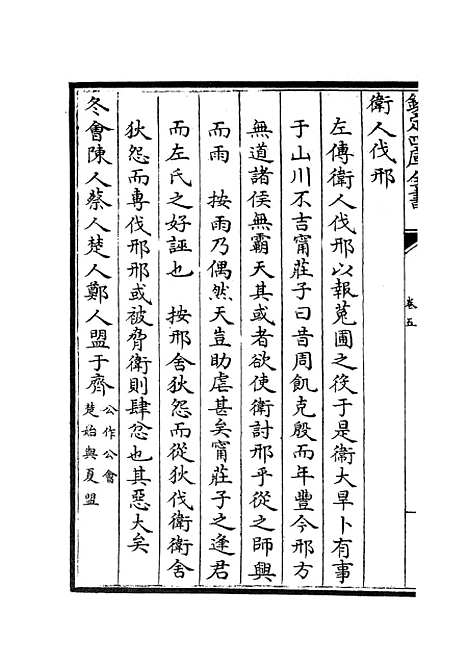 欽定四庫全書
卷五
衛人伐邢
左傳衛人伐邢以報菟圃之役于是衛大旱卜有事
于山川不吉甯莊子曰昔周飢克殷而年豐今邢方
無道諸侯無霸天其或者欲使衛討邢乎從之師興
而雨　按雨乃偶然天豈助虐甚矣甯莊子之逢君
而左氏之好誣也　按邢舍狄怨而從狄伐衛衛舍
狄怨而專伐邢邢或被脅衛則肆忿也其惡大矣
冬會陳人蔡人楚人鄭人盟于齊公作公會
楚始與夏盟